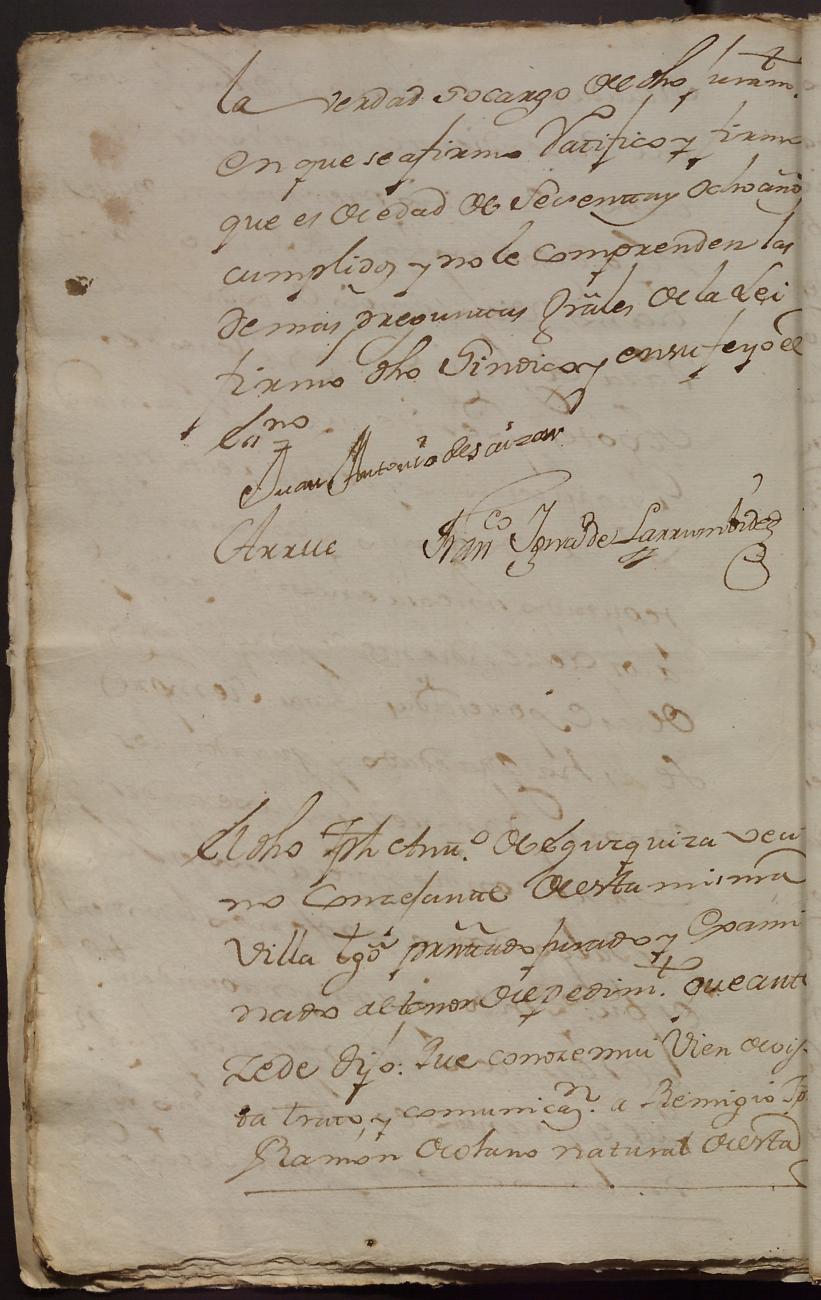 la verdad so cargo de dho juram.to
en que se afirmo Ratifico y firmo
que es de edad de Sesenta y ocho añs
cumplidos y no le comprenden las
demas preguntas Grãles de la Lei
firmo dho Sindico y en su fe yo el
Esno
Juan Antonio de
Arrue Franco Ignadc de Larrumbide
El dho Jph Antt.o de Eguzquiza veci
no Conzejante de esta misma
Villa tgo prñtado jurado y Exami
nado al tenor del pedim.to que ante
zede dijo: Que conoze mui Vien de vis
ta trato, y comunicaz.n a Remigio Jph
Ramón de Olano natural de esta